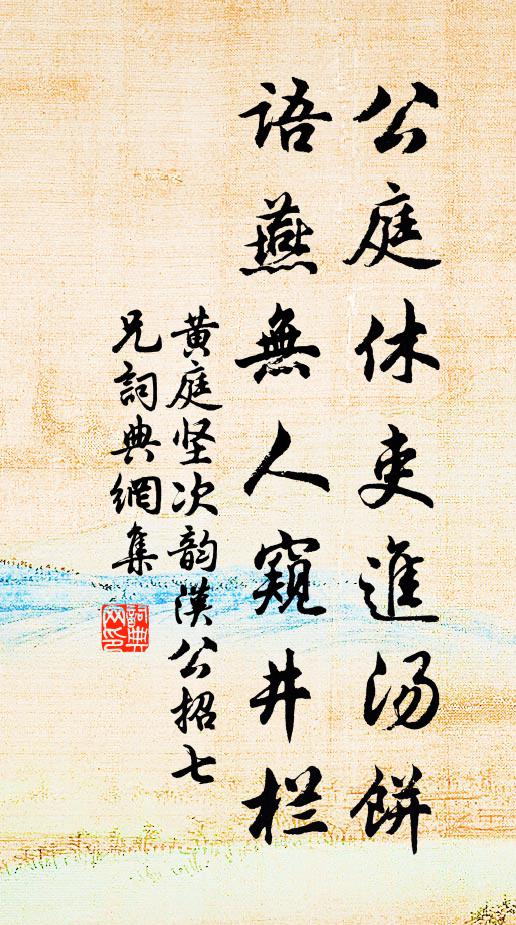 公庭休吏進汤餅
語燕無人窺井栏
黄庭坚次韵漢公招七
兄詞典網集
詞典
网印